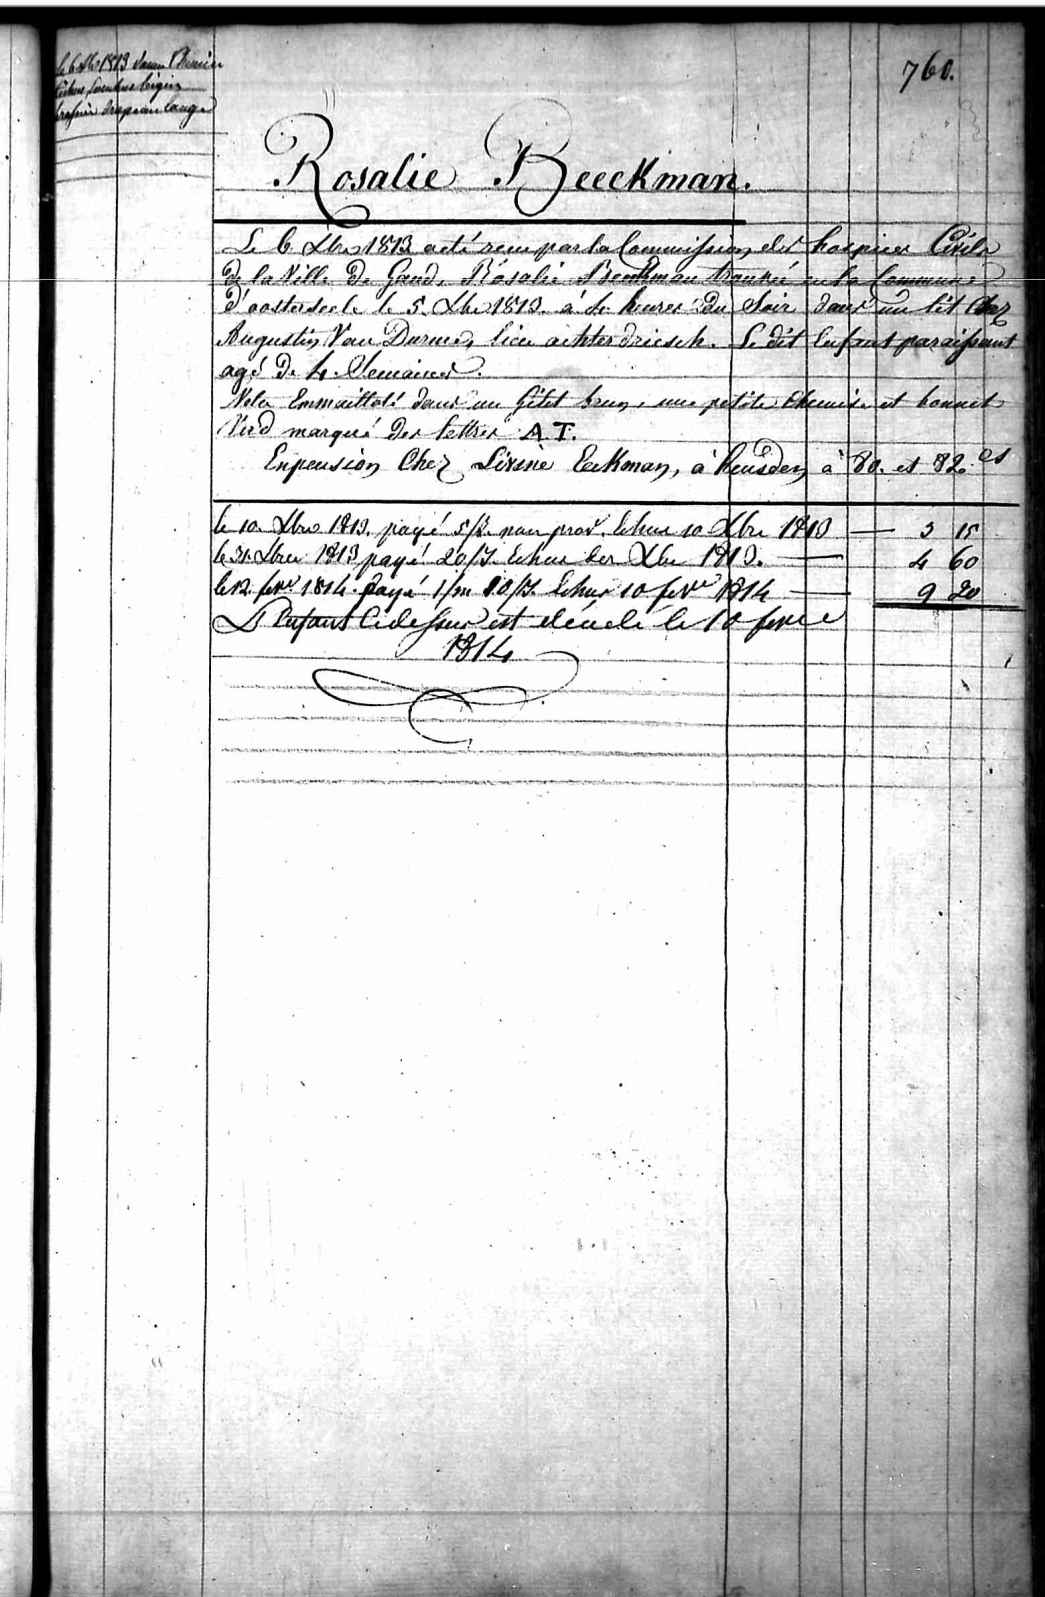 760.
le 6 Xbre 1813
Rosalie Beeckman.
Le 6 Xbre 1813 a eté recu par la Commission des hospices Civils
de la Ville de Gand, Rosalie Beeckman trouvée en la Commune
d'oosterseele le 5. Xbre 1813. à 4. heures du Soir dans un lit Chez
Augustin Van Durmen lieu achterdriesch. Le dit Enfant paraissant
agé de 4. Semaines.
Nota Emmailloté dans un Gilet brun, une petite Chemise et bonnet
marqué des lettres A.T.
Enpension Chez Livine Eeckman, à heusden à 80. et 82. es
le 10 Xbre 1813. payé Echue 10 Xbre 1813 — 3 15
le 31. Xbre 1813 payé 20/J. Echue Xbre 1813. — 4 60
le 12. fevr 1814. payé 1/m 10/J. Echue 10 fevr 1814 — 9 20
L'Enfant Cidessus est décédé le 10 fevr
1814